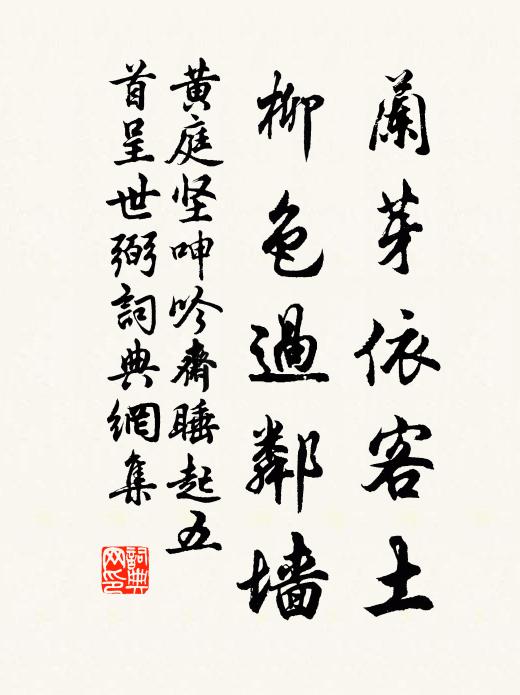 蘭芽依客土
柳色過鄰墙
黄庭坚呻吟齋睡起五
首呈世弼詞典網集
詞典网印